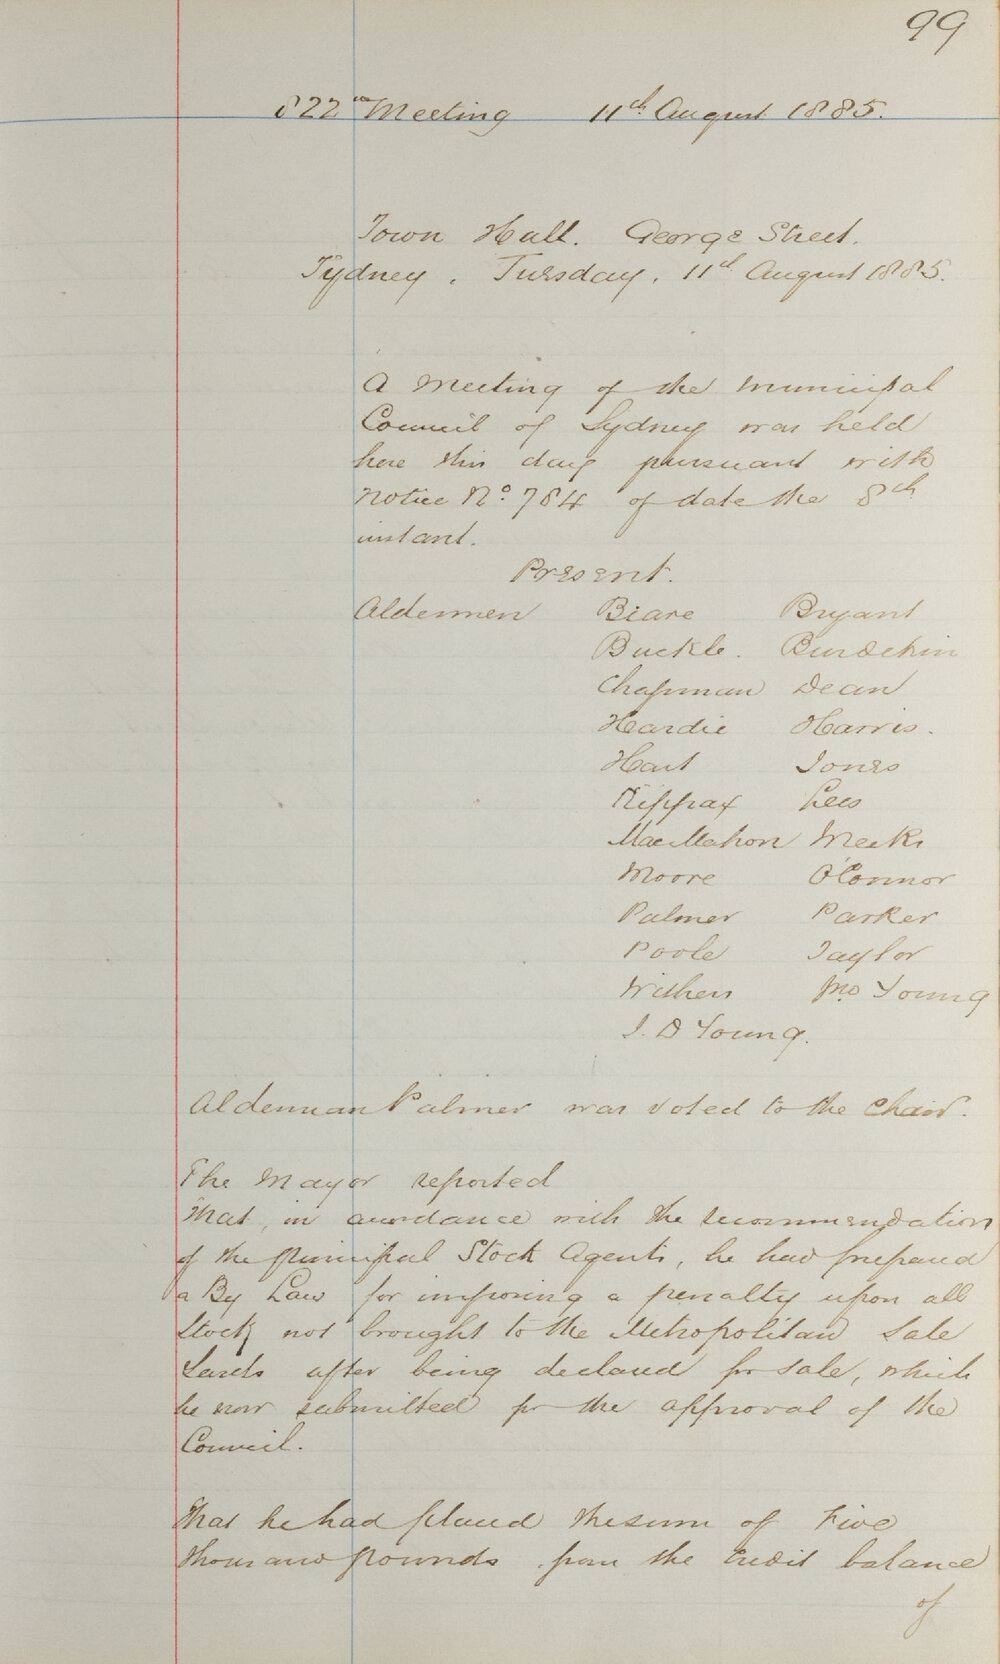 99
822nd Meeting 11th August 1885.
Town Hall. George Street.
Sydney. Tuesday. 11th August 1885.
A Meeting of the Municipal
Council of Sydney was held
here this day pursuant with
notice No. 784 of date the 8th
instant.
Present.
Aldermen Beare Bryant
Buckle. Burdekin
Chapman Dean
Hardie Harris.
Hart Jones
Kippax Lees
MacMahon Meeks
Moore O'Connor
Palmer Parker
Poole Taylor
Withers Jno Young
J. D Young.
Alderman Palmer was voted to the Chair.
The Mayor reported
That, in accordance with the recommendation
of the Municipal Stock Agents, he had prepared
a By Law for imposing a penalty upon all
Stock not brought to the Metropolitan Sale
Yards after being declared for sale, which
he now submitted for the approval of the
Council.
That he had placed the sum of Five
thousand pounds from the credit balance
of